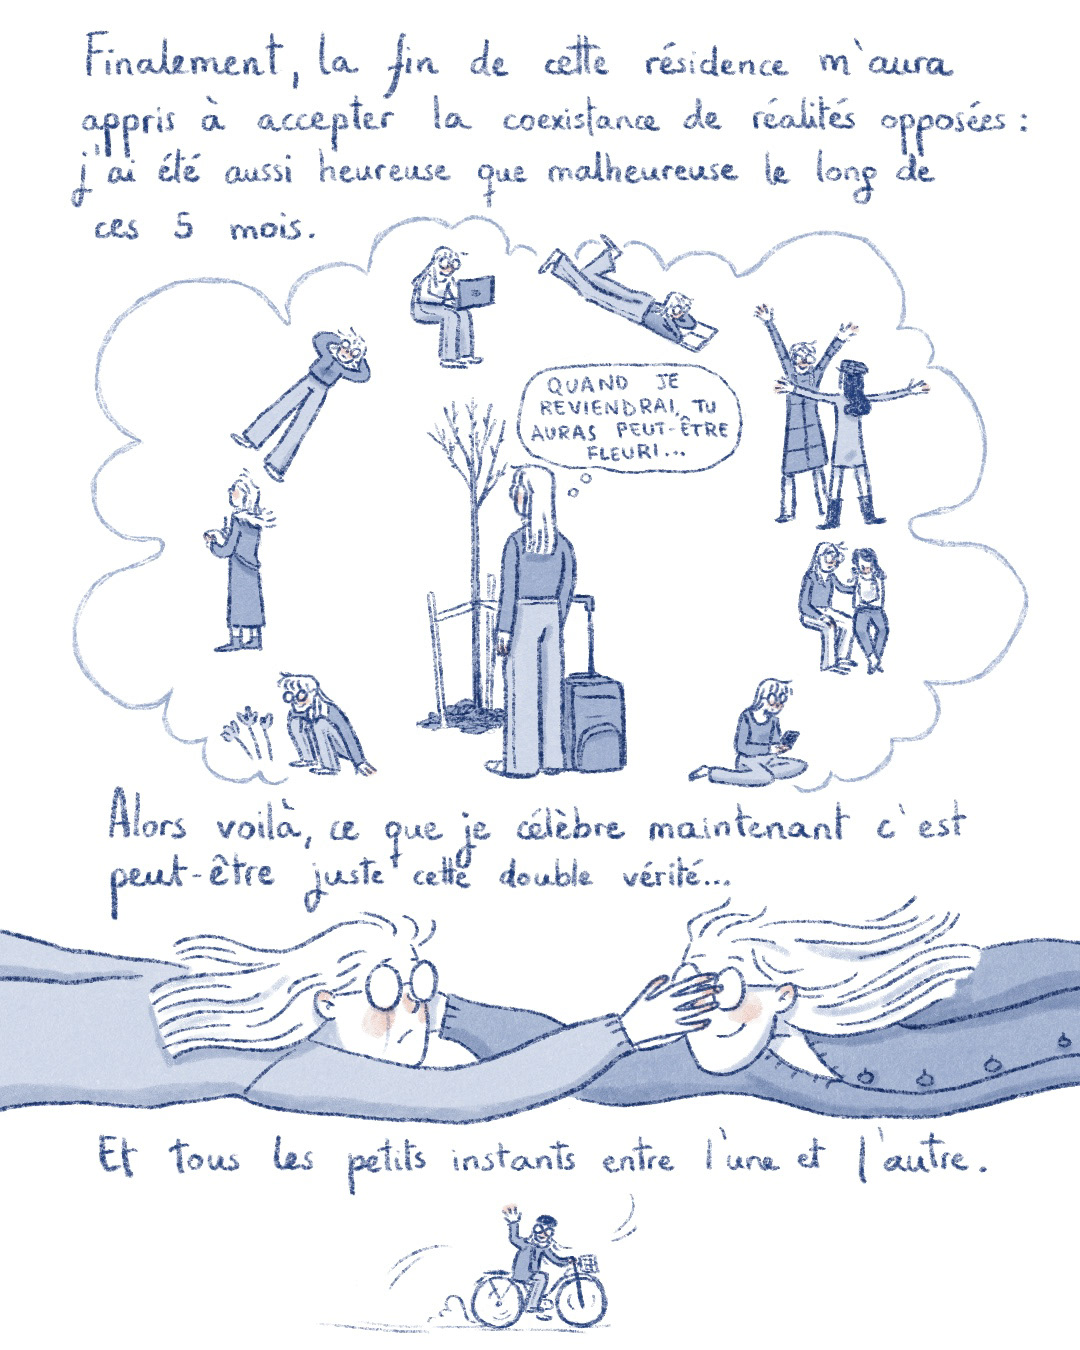 Finalement, la fin de cette résidence m'aura
appris à accepter la coexistance de réalités opposées :
j'ai été aussi heureuse que malheureuse le long de
ces 5 mois.
QUAND JE
REVIENDRAI, TU
AURAS PEUT-ÊTRE
FLEURI...
Alors voilà, ce que je célèbre maintenant c'est
peut-être juste cette double vérité...
Et tous les petits instants entre l'une et l'autre.